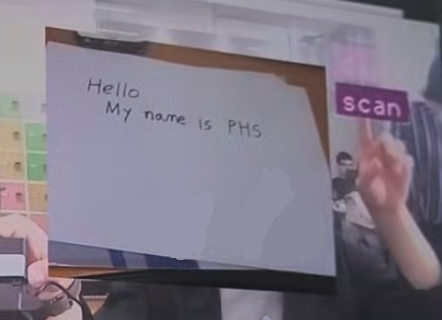 Hello
My name is PHS
scan